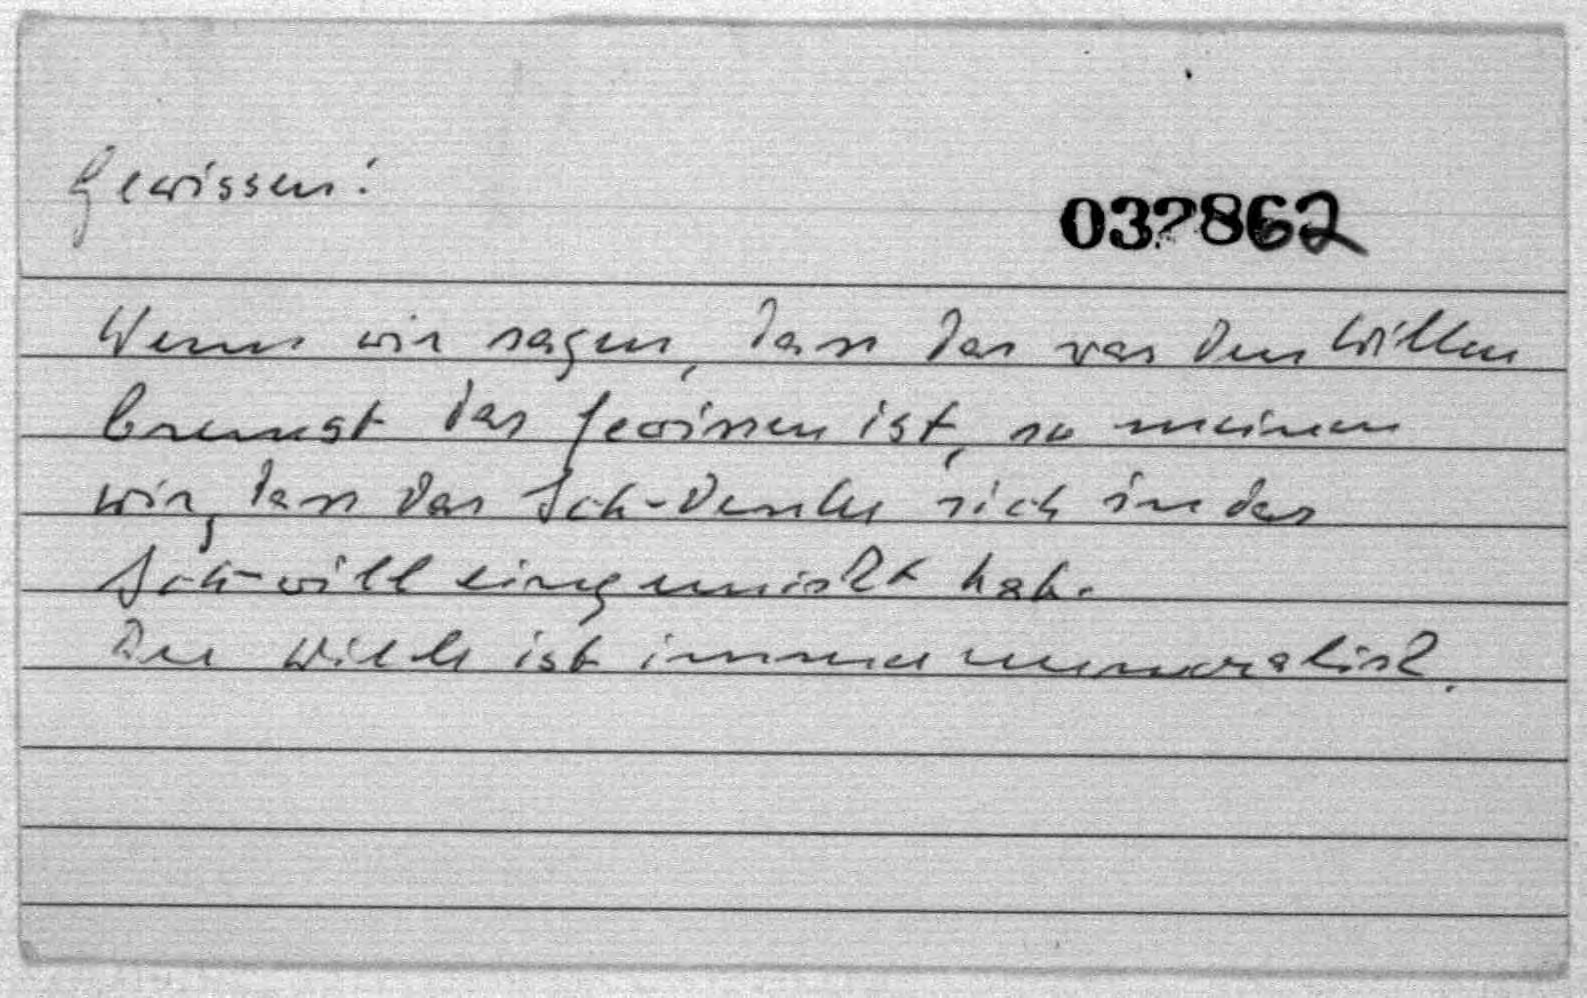 Gewissen:
032862
Wenn wir sagen, dass das was den Willen
bremst das Gewissen ist, so meinen
wir, dass das Ich-denke sich in das
Ich-will eingemischt hat.
Der Wille ist immer unmoralisch.